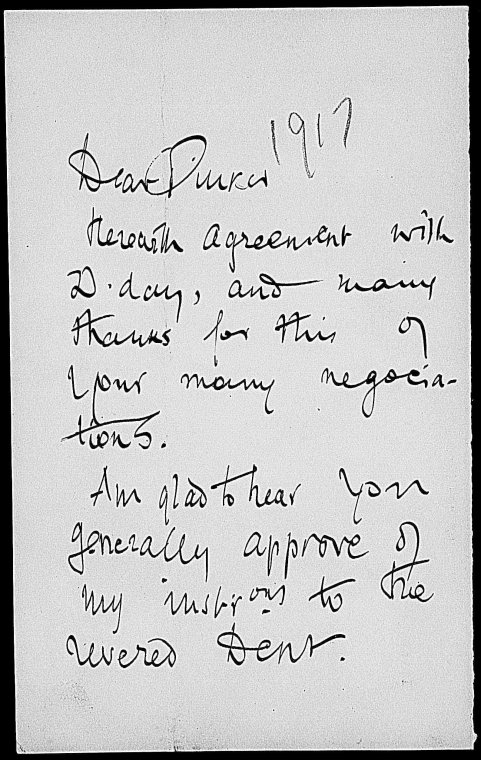 1917
Dear Pinker
Herewith agreement with
D. day, and many
thanks for this of
your many negocia-
tions.
Am glad to hear you
generally approve of
my instrons to the
revered Dent.